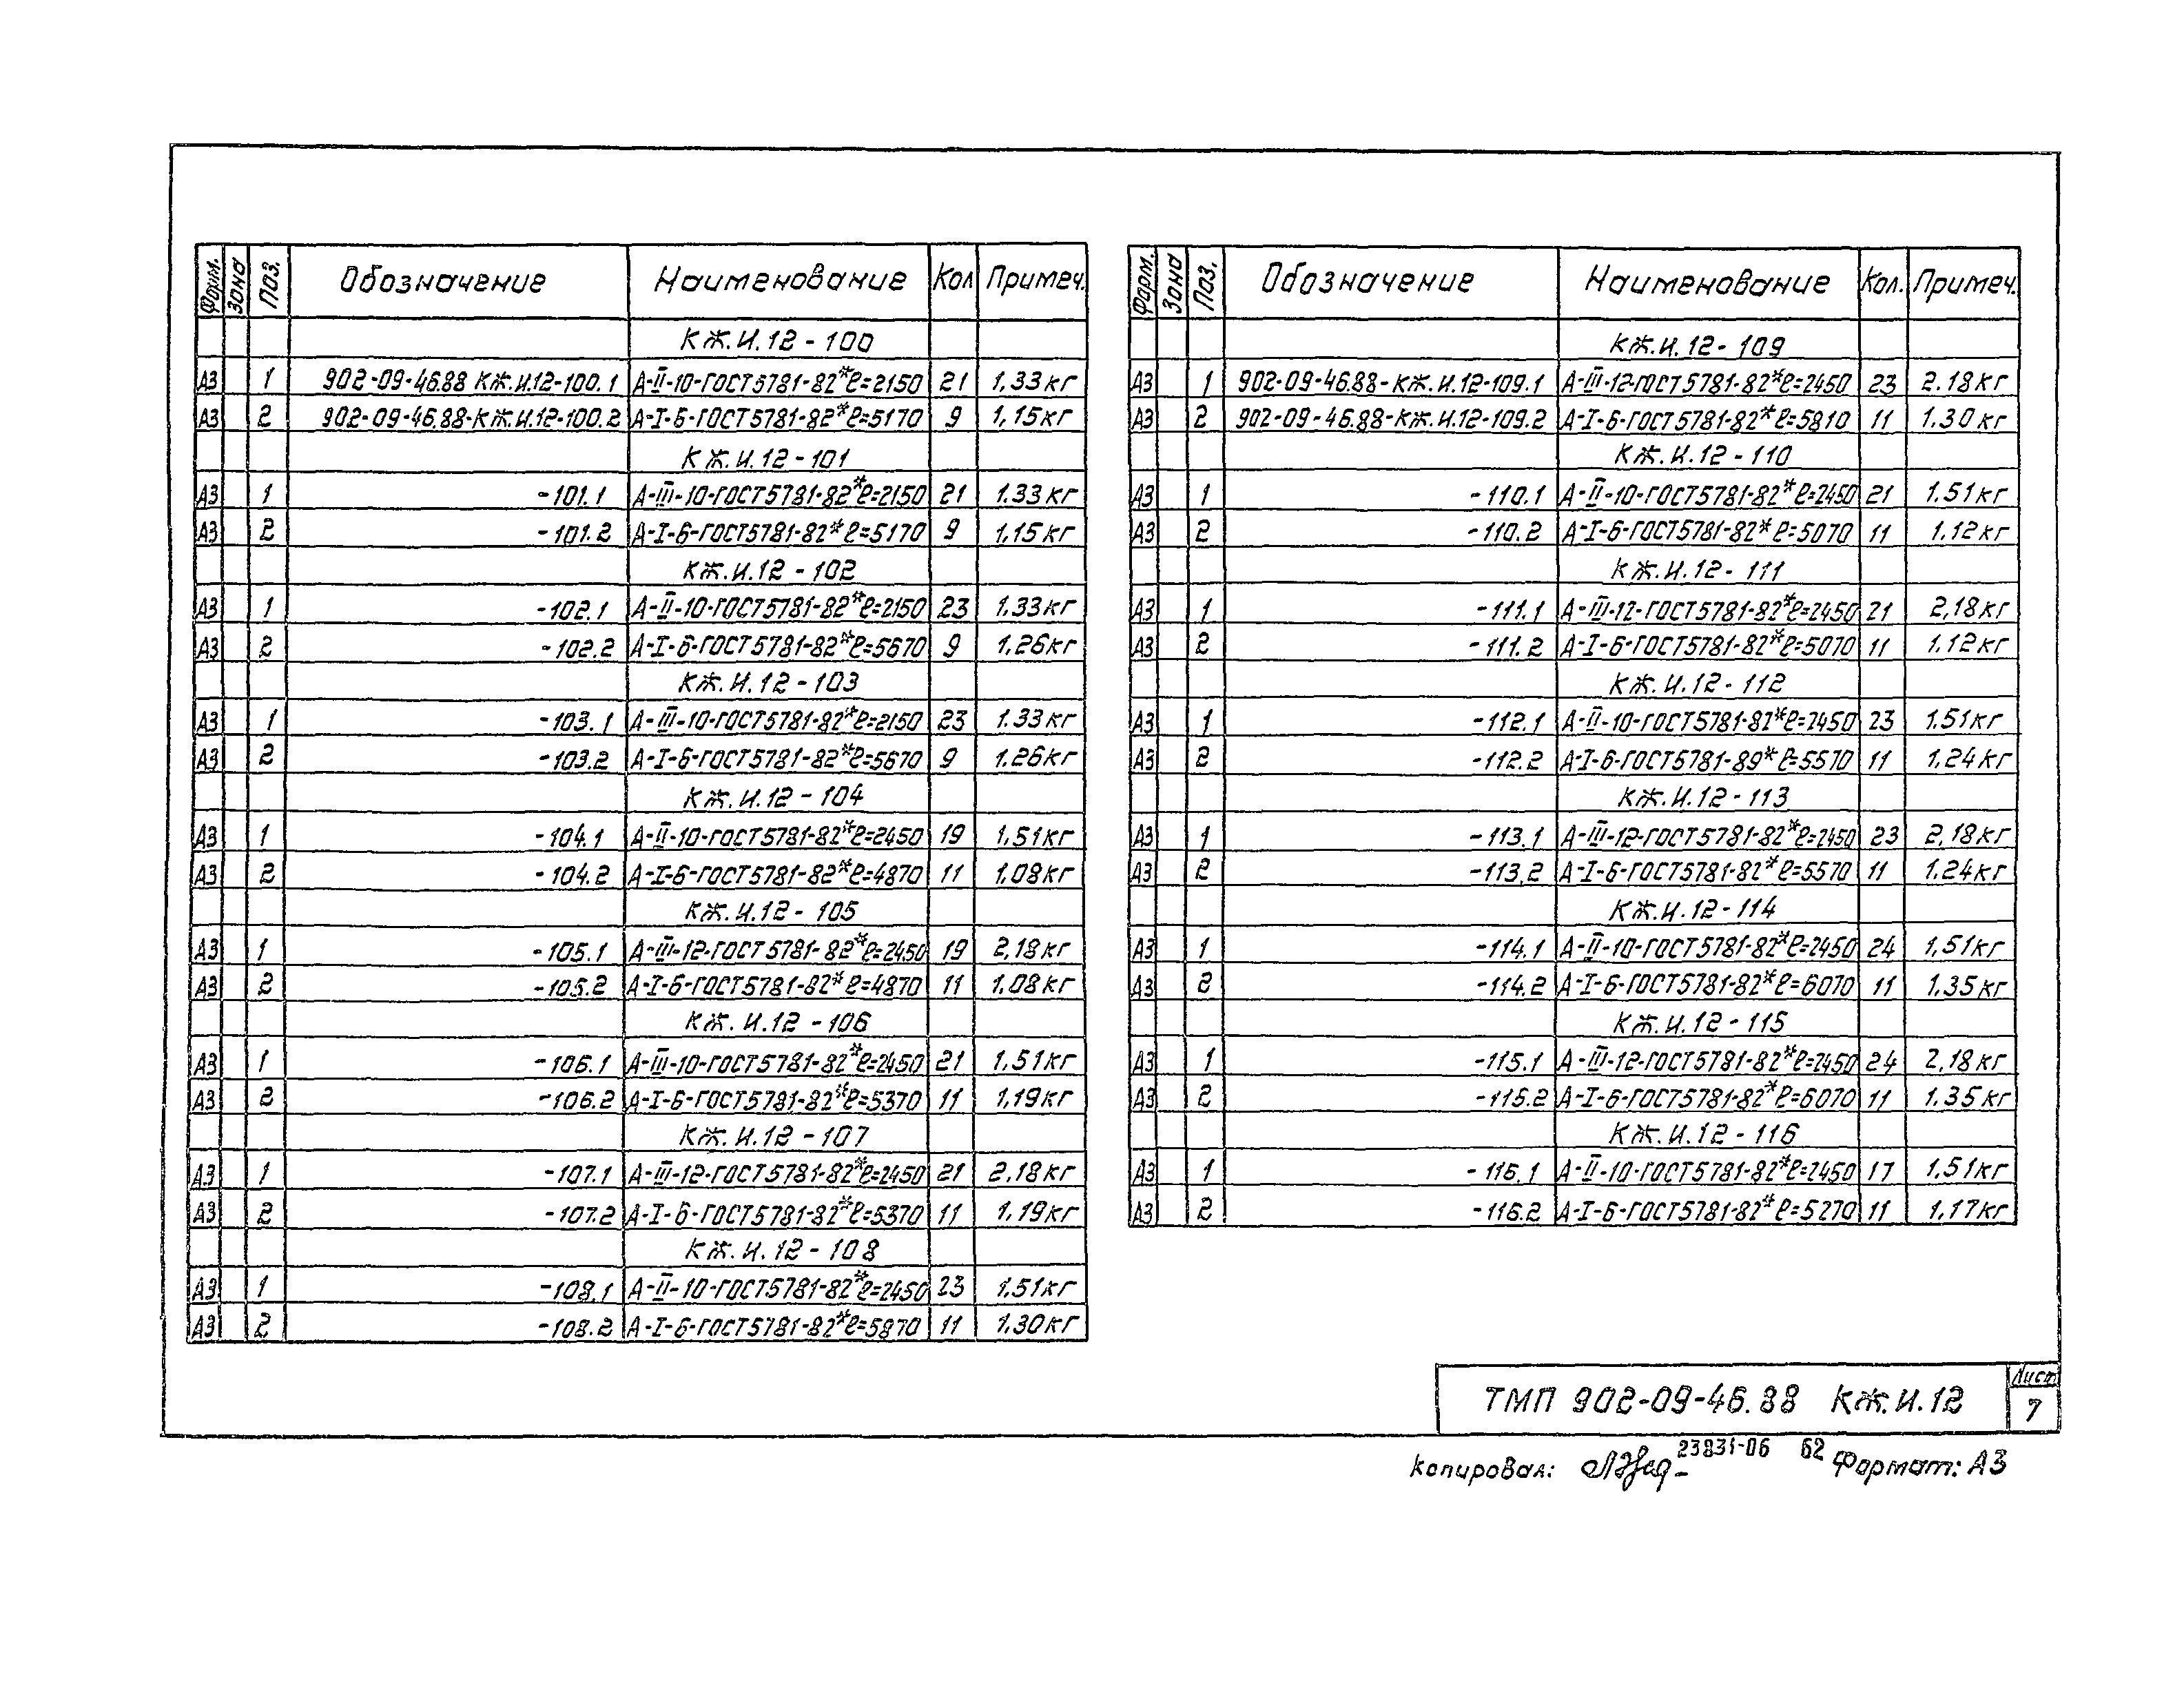 Форм. Зона Поз. Обозначение Наименование Кол Примеч.
КЖ.И.12-100
А3 1 902-09-46.88 КЖ.И.12-100.1 А-II-10-ГОСТ5781-82* ℓ=2150 21 1,33кг
А3 2 902-09-46.88-КЖ.И.12-100.2 А-I-6-ГОСТ5781-82* ℓ=5170 9 1,15кг
КЖ.И.12-101
А3 1 -101.1 А-III-10-ГОСТ5781-82* ℓ=2150 21 1.33кг
А3 2 -101.2 А-I-6-ГОСТ5781-82* ℓ=5170 9 1,15кг
КЖ.И.12-102
А3 1 -102.1 А-II-10-ГОСТ5781-82* ℓ=2150 23 1.33кг
А3 2 -102.2 А-I-6-ГОСТ5781-82* ℓ=5670 9 1,26кг
КЖ.И.12-103
А3 1 -103.1 А-III-10-ГОСТ5781-82* ℓ=2150 23 1.33кг
А3 2 -103.2 А-I-6-ГОСТ5781-82* ℓ=5670 9 1.26кг
КЖ.И.12-104
А3 1 -104.1 А-II-10-ГОСТ5781-82* ℓ=2450 19 1,51кг
А3 2 -104.2 А-I-6-ГОСТ5781-82* ℓ=4870 11 1.08кг
КЖ.И.12-105
А3 1 -105.1 А-III-12-ГОСТ5781-82* ℓ=2450 19 2,18кг
А3 2 -105.2 А-I-6-ГОСТ5781-82* ℓ=4870 11 1.08кг
КЖ.И.12-106
А3 1 -106.1 А-III-10-ГОСТ5781-82* ℓ=2450 21 1.51кг
А3 2 -106.2 А-I-6-ГОСТ5781-82* ℓ=5370 11 1,19кг
КЖ.И.12-107
А3 1 -107.1 А-III-12-ГОСТ5781-82* ℓ=2450 21 2.18кг
А3 2 -107.2 А-I-6-ГОСТ5781-82* ℓ=5370 11 1.19кг
КЖ.И.12-108
А3 1 -108.1 А-II-10-ГОСТ5781-82* ℓ=2450 23 1.51кг
А3 2 -108.2 А-I-6-ГОСТ5781-82* ℓ=5870 11 1.30кг
Форм. Зона Поз. Обозначение Наименование Кол. Примеч.
КЖ.И.12-109
А3 1 902-09-46.88-КЖ.И.12-109.1 А-III-12-ГОСТ5781-82* ℓ=2450 23 2.18кг
А3 2 902-09-46.88-КЖ.И.12-109.2 А-I-6-ГОСТ5781-82* ℓ=5810 11 1.30кг
КЖ.И.12-110
А3 1 -110.1 А-II-10-ГОСТ5781-82* ℓ=2450 21 1.51кг
А3 2 -110.2 А-I-6-ГОСТ5781-82* ℓ=5070 11 1.12кг
КЖ.И.12-111
А3 1 -111.1 А-III-12-ГОСТ5781-82* ℓ=2450 21 2,18кг
А3 2 -111.2 А-I-6-ГОСТ5781-82* ℓ=5070 11 1.12кг
КЖ.И.12-112
А3 1 -112.1 А-II-10-ГОСТ5781-82* ℓ=2450 23 1.51кг
А3 2 -112.2 А-I-6-ГОСТ5781-89* ℓ=5570 11 1.24кг
КЖ.И.12-113
А3 1 -113.1 А-III-12-ГОСТ5781-82* ℓ=2450 23 2,18кг
А3 2 -113.2 А-I-6-ГОСТ5781-82* ℓ=5570 11 1.24кг
КЖ.И.12-114
А3 1 -114.1 А-II-10-ГОСТ5781-82* ℓ=2450 24 1,51кг
А3 2 -114.2 А-I-6-ГОСТ5781-82* ℓ=6070 11 1,35кг
КЖ.И.12-115
А3 1 -115.1 А-III-12-ГОСТ5781-82* ℓ=2450 24 2,18кг
А3 2 -115.2 А-I-6-ГОСТ5781-82* ℓ=6070 11 1.35кг
КЖ.И.12-116
А3 1 -116.1 А-II-10-ГОСТ5781-82* ℓ=2450 17 1,51кг
А3 2 -116.2 А-I-6-ГОСТ5781-82* ℓ=5270 11 1,17кг
ТМП 902-09-46.88 КЖ.И.12
Лист
7
Копировал: 23831-06 62 Формат: А3